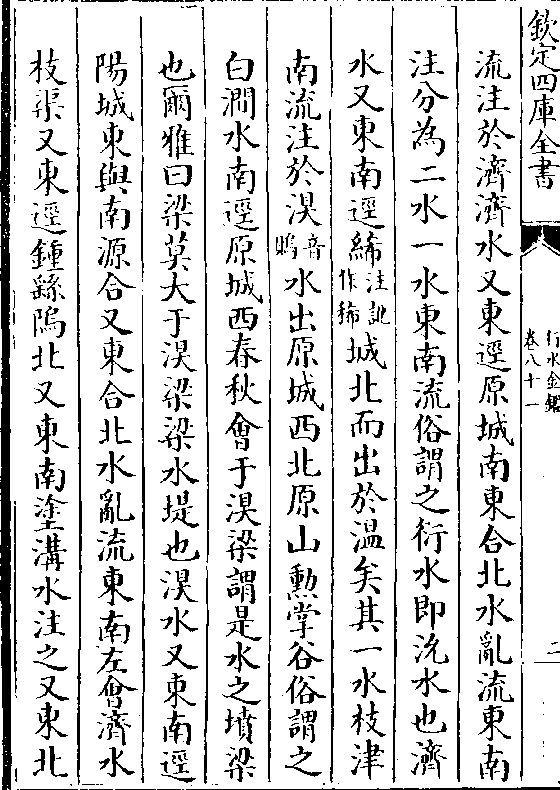 欽定四庫全書
行水金鑑
卷八十一
二
流注於濟濟水又東逕原城南東合北水亂流東南
注分為二水一水東南流俗謂之衍水即沇水也濟
水又東南逕絺注訛作狶城北而出於溫矣其一水枝津
南流注於湨音鵙水出原城西北原山勲掌谷俗謂之
白澗水南逕原城西春秋會于湨梁謂是水之墳梁
也爾雅曰梁莫大于湨梁梁水堤也湨水又東南逕
陽城東與南源合又東合北水亂流東南左會濟水
枝渠又東逕鍾繇隖北又東南塗溝水注之又東北